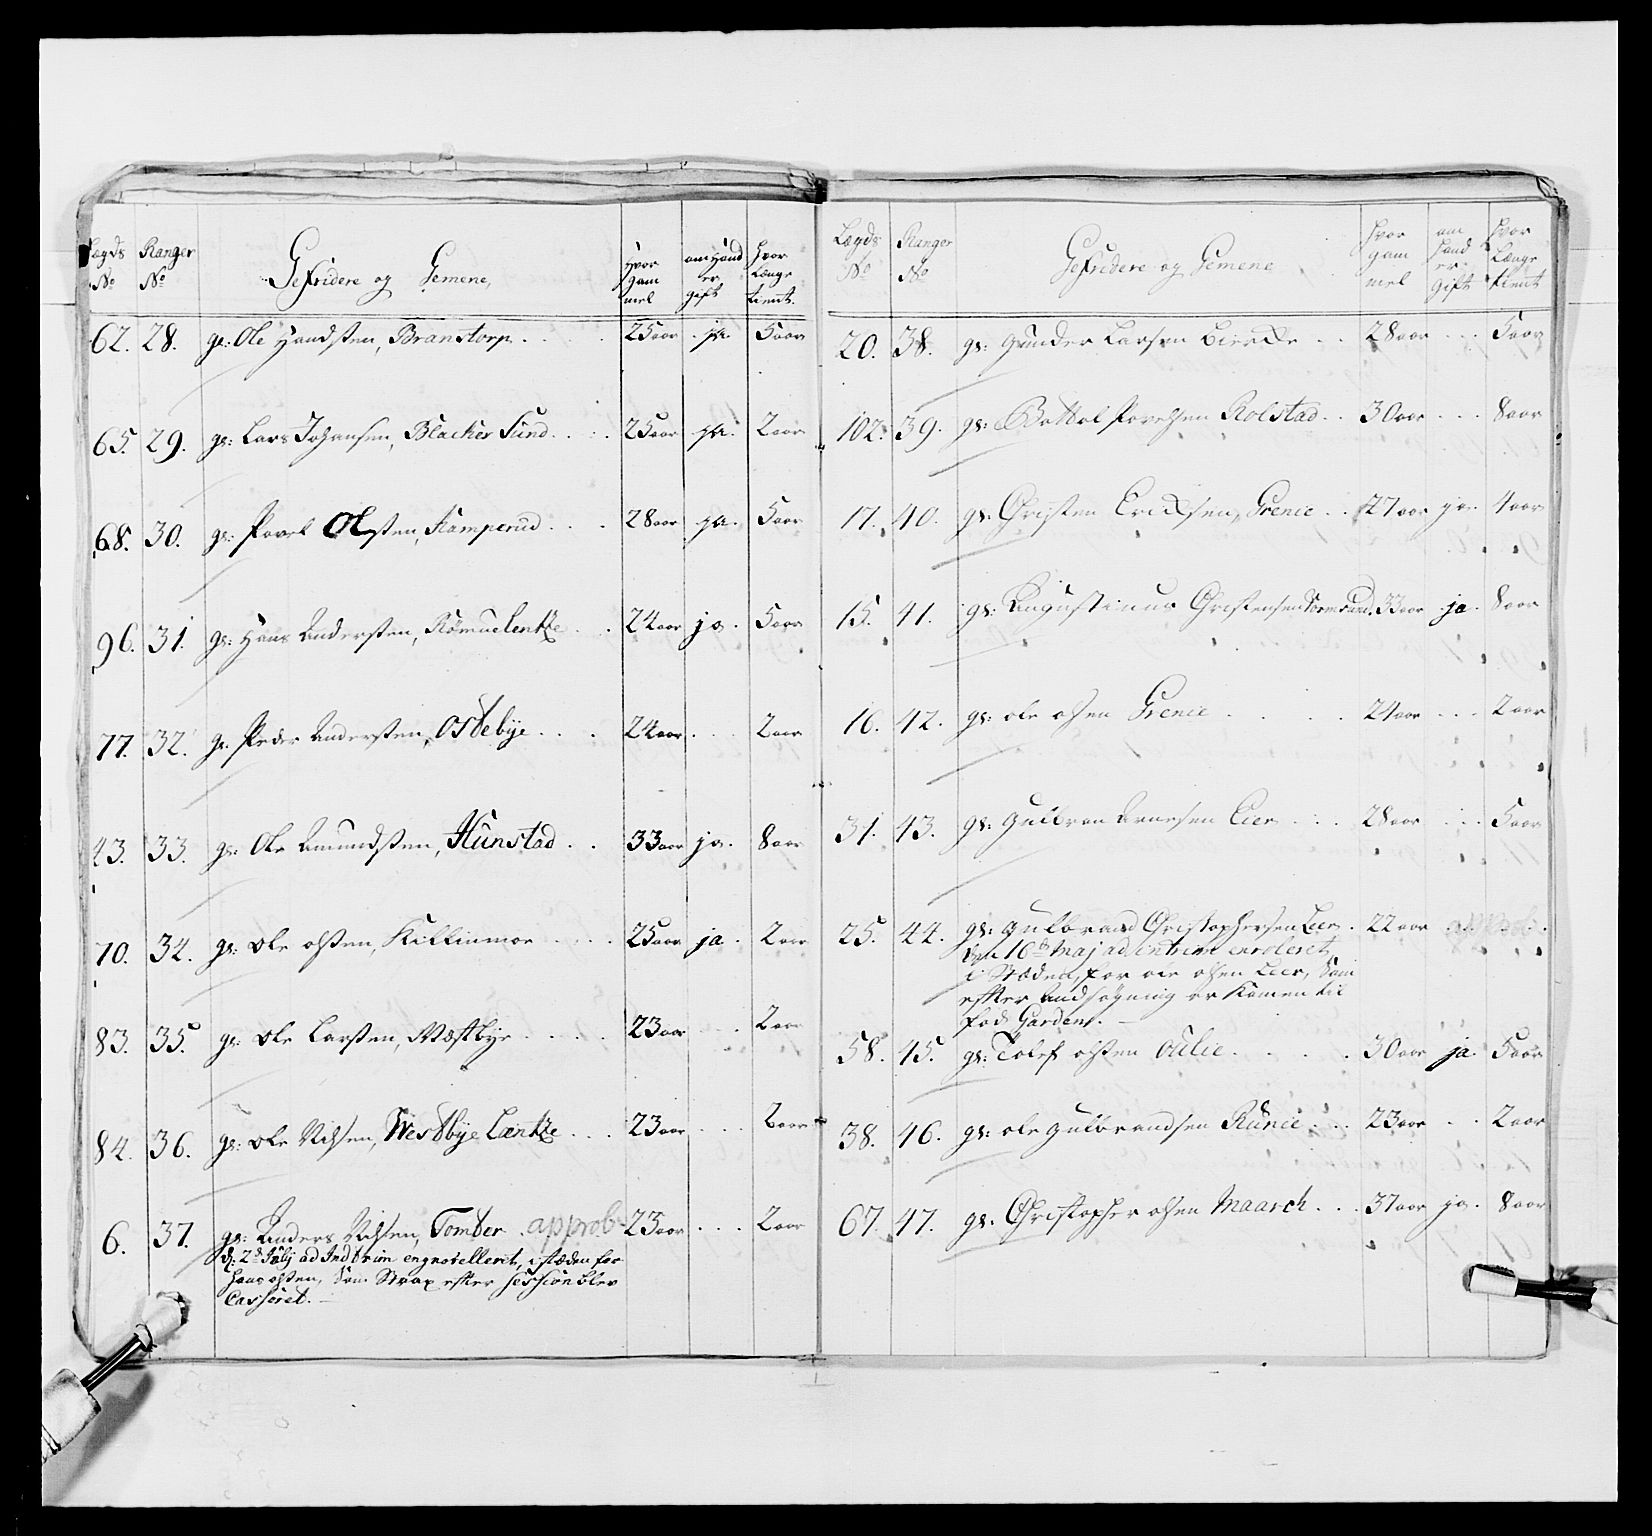 Lægds No | Ranger No | Gefridere og Gemene, | Hvor gam mel | om Hand er gift | Hvor Længe tient.
62. | 28. | gs: Ole Handsten, Branstorp . . . . | 25 aar | ja. | 5 aar
65. | 29. | gs: Lars Johansen, Blacher Sund . . . | 25 aar | ja. | 2 aar
68. | 30. | gs: Povel Olsten, Kamperud . . . | 28 aar | ja. | 5 aar
96. | 31. | gs: Hans Andersten, Kömuelentze . . | 24 aar | ja. | 5 aar
77. | 32. | gs. Peder Andersten, Ostebÿe . . . | 24 aar | . . . | 2 aar
43. | 33. | gs: Ole Amundsten, Hunstad . . | 33 aar | ja. | 8 aar
70. | 34. | gs: Ole Olsten, Killinmoe . . . | 25 aar | ja. | 2 aar
83. | 35. | gs: Ole Larsten, Westbye . . . . | 23 aar | . . . | 2 aar
84. | 36. | gs: Ole Nilsen, Westbÿe Lænkze . . . | 23 aar | . . . | 2 aar
6. | 37. | gs: Anders Nilsen, Tomter. approb: | 23 aar | . . . | 2 aar
d: 2d Julj ad Indtrim engrotelleret, i stæden for
Hans Olsten, Som Strax efter Session blev
Casseret.
Lægds No | Ranger No | Gefridere og Gemene | Hvor gam mel | om Hand er Gift | Hvor Længe tient
20. | 38. | gs: Gunder Larsen Bierche . . | 28 aar | . . . | 5 aar
102. | 39. | gs: Bottol Povelsen Rolstad . . | 30 aar | . . . | 8 aar
17. | 40. | gs: Christen Erichsen, Grenie . . | 27 aar | ja. | 4 aar
15. | 41. | gs: Augustinus Christensen Sormsund. | 33 aar | ja. | 8 aar
16. | 42. | gs: ole olsen Grenie . . . . | 24 aar | . . . | 2 aar
31. | 43. | gs: Gulbran Arnesen Eier . . . | 28 aar | . . . | 5 aar
25. | 44. | gs: Gulbrand Christophersen Leer. | 22 aar | approb:
den 16de Maj ad intrim enroleret
i Stæden, for ole olsen Leer, Som
efter Andsøgning er Kommen til
fod Garden.
58. | 45. | gs: Tolef olsten Oulie . . . . | 30 aar | ja. | 5 aar
38. | 46. | gs: ole gulbrandsen Runie . . . | 23 aar | . . | 2 aar
67. | 47. | gs: Christopher olsen Maarch . . . | 37 aar | ja. | 8 aar